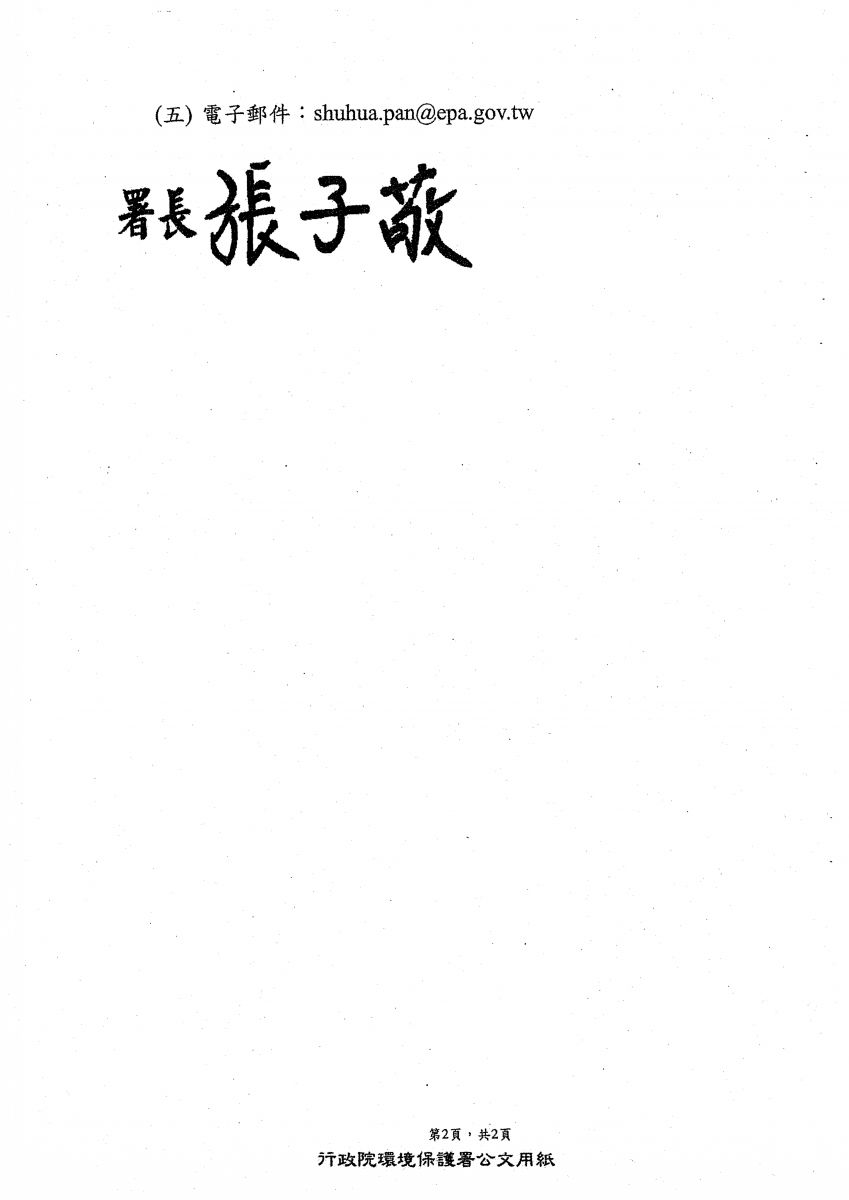 (五) 電子郵件：shuhua.pan@epa.gov.tw
署長 張子敬
第2頁，共2頁
行政院環境保護署公文用紙